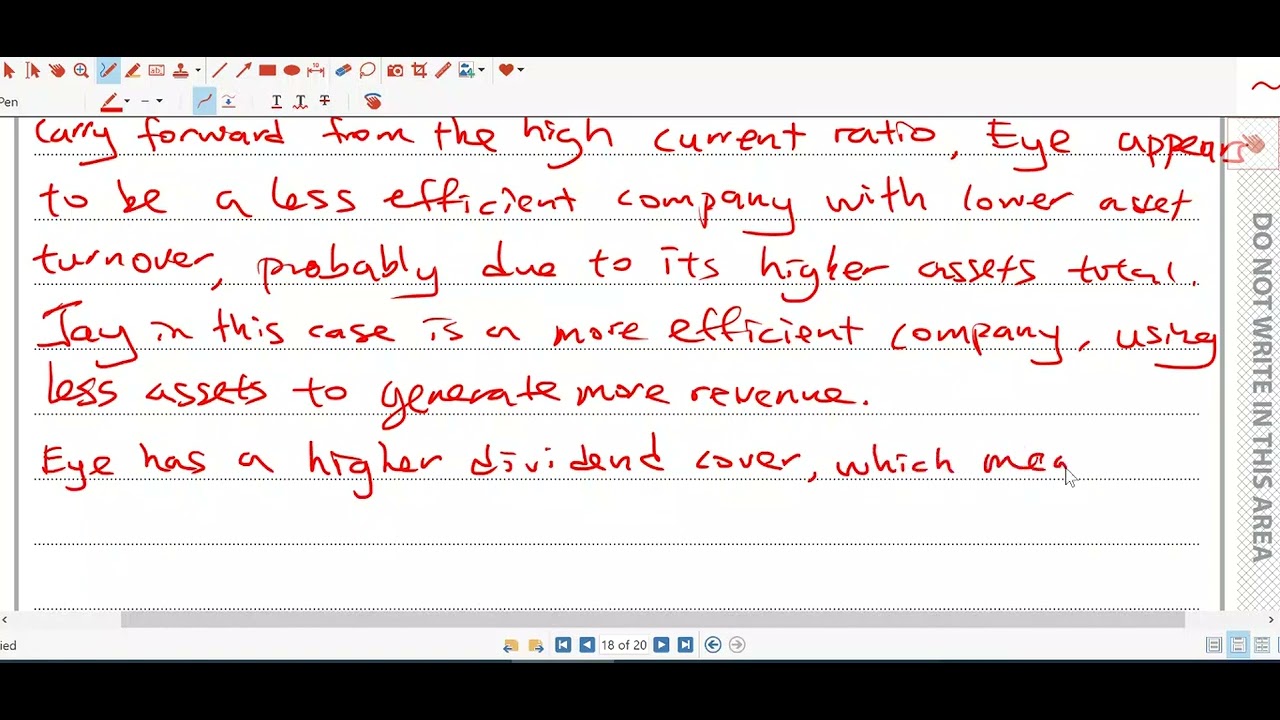 Pen
carry forward from the high current ratio, Eye appears
to be a less efficient company with lower asset
turnover, probably due to its higher assets total.
Jay in this case is a more efficient company, using
less assets to generate more revenue.
Eye has a higher dividend cover, which mea
DO NOT WRITE IN THIS AREA
ied
18 of 20